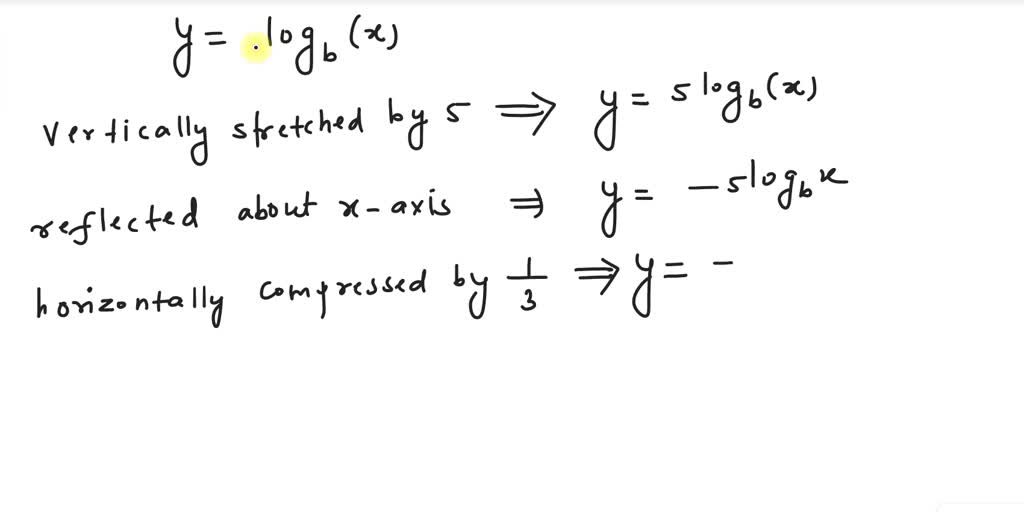 y = log_b (x)
Vertically stretched by 5 ⟹ y = 5 log_b (x)
reflected about x-axis ⇒ y = -5 log_b x
horizontally compressed by 1/3 ⟹ y = -